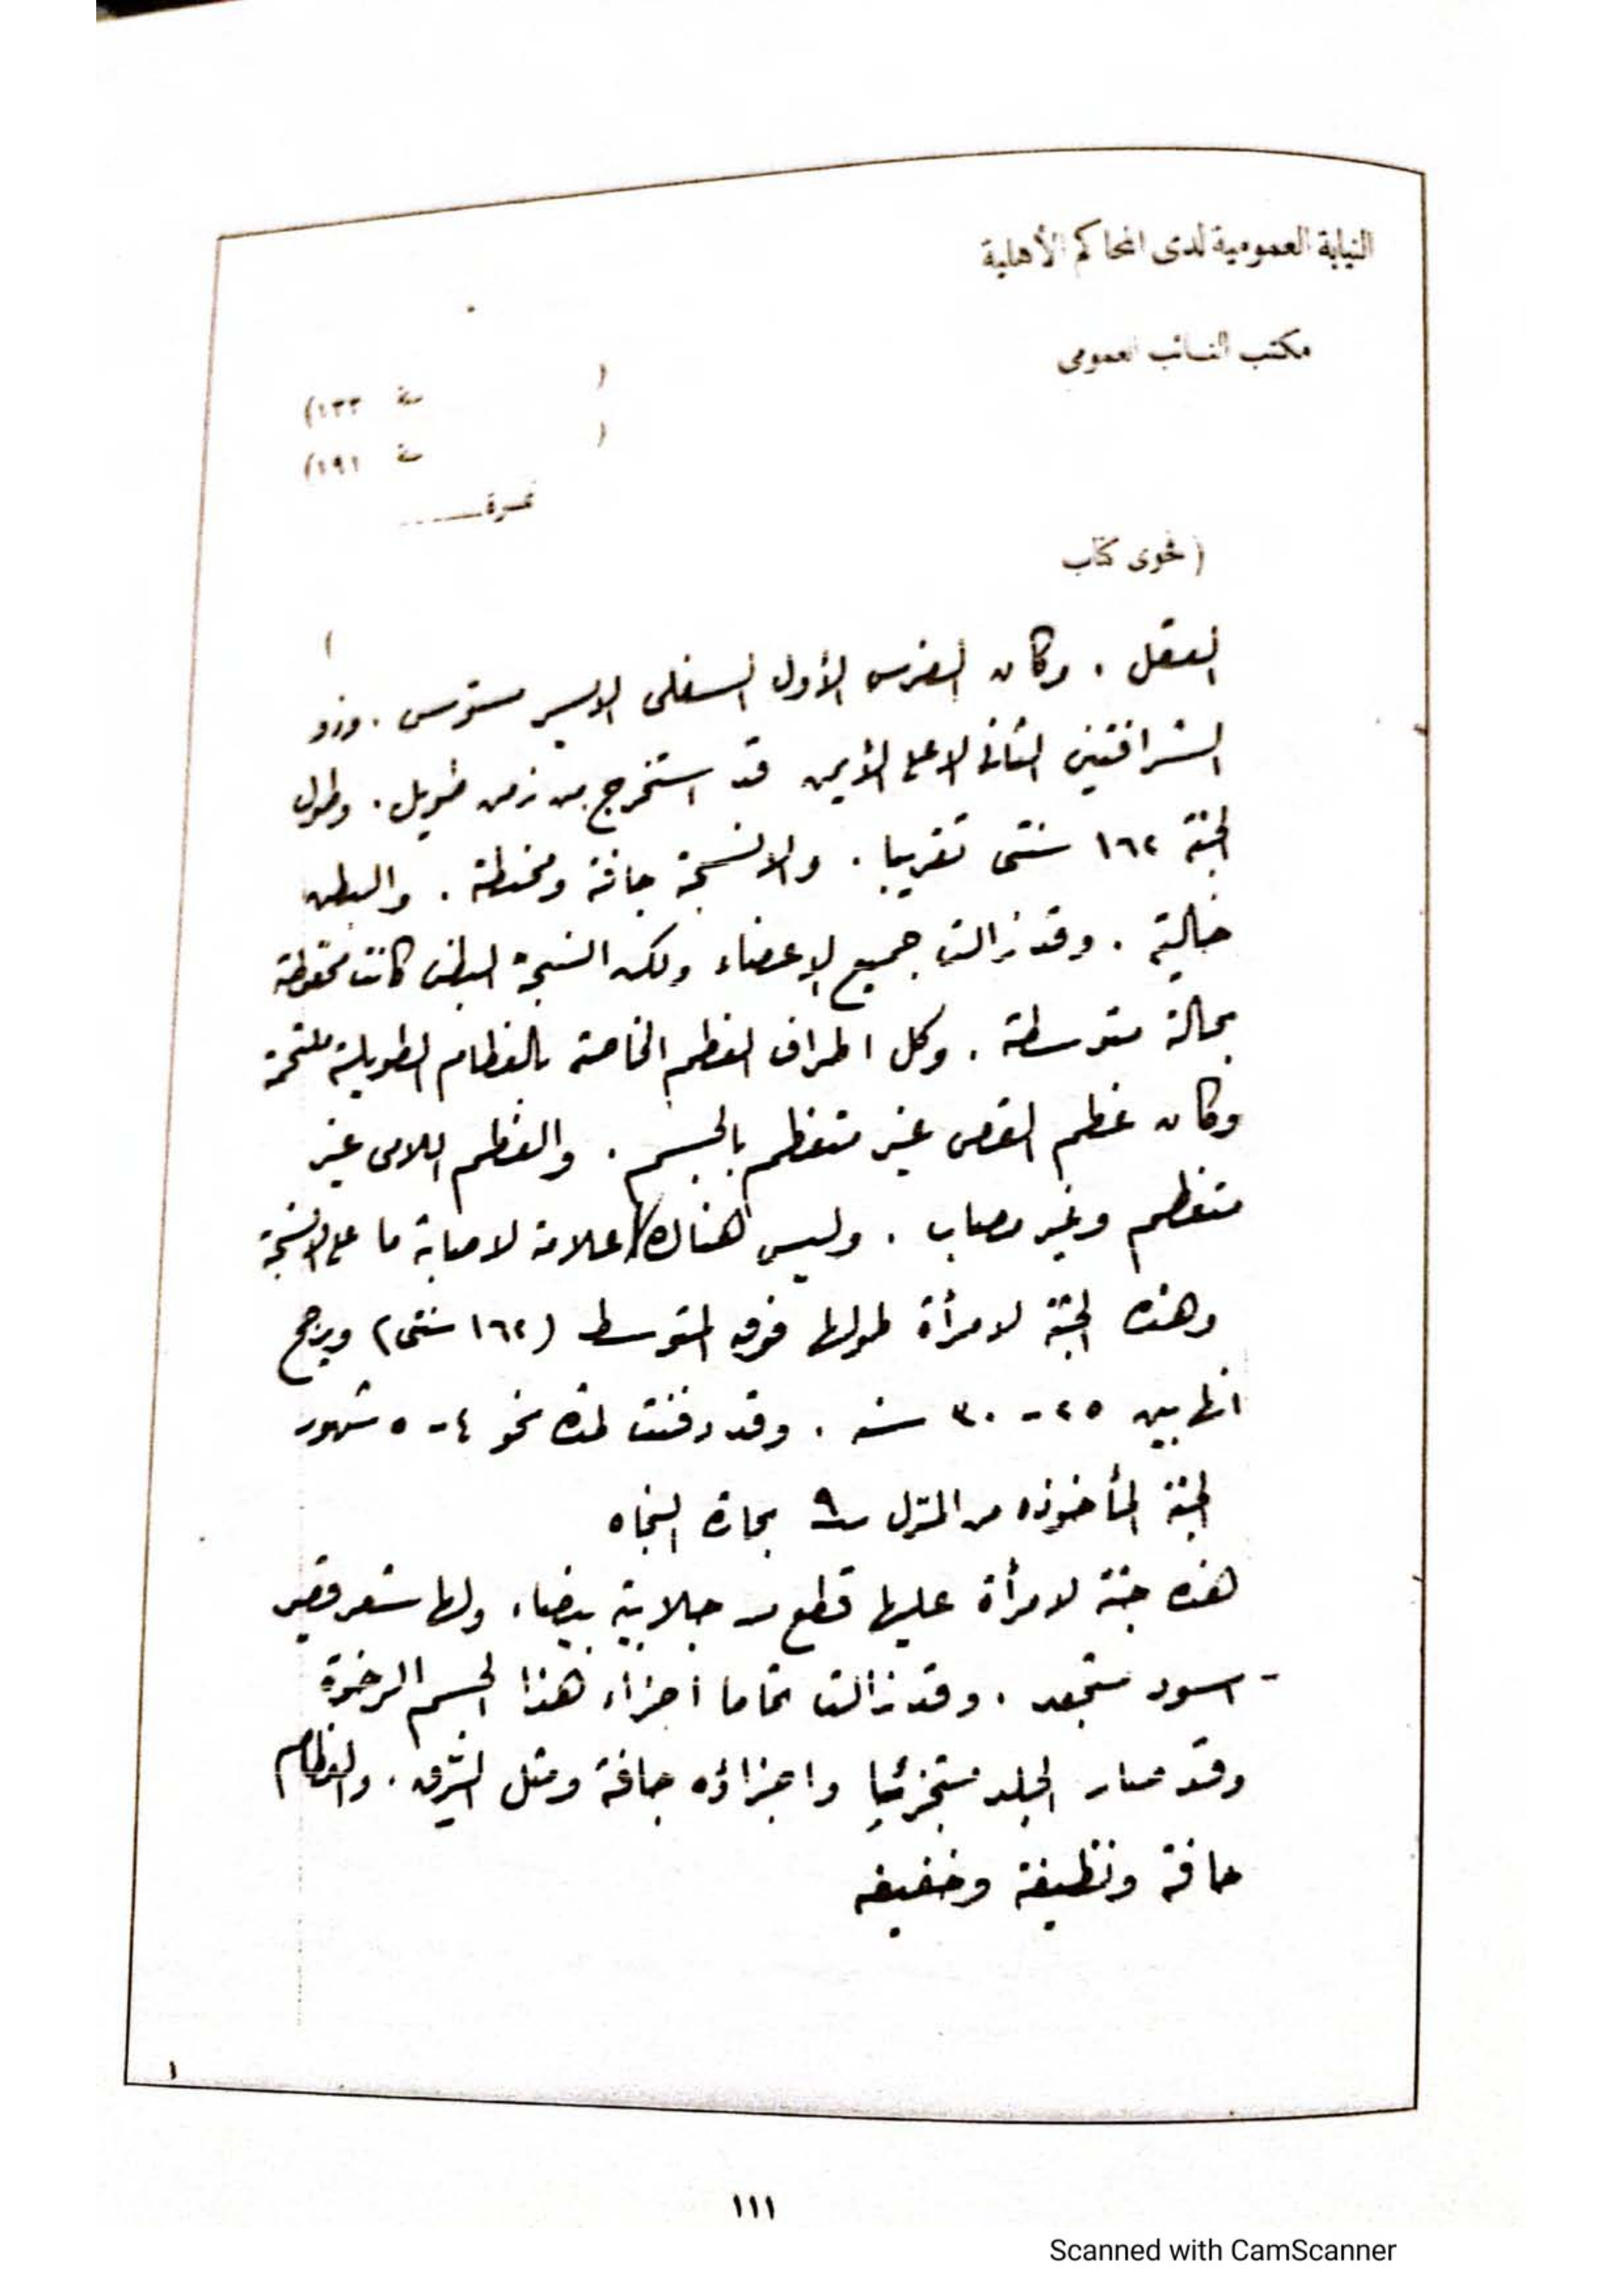 النيابة العمومية لدى المحاكم الأهلية
مكتب النائب العمومى
( سنة ١٣٣)
( سنة ١٩١)
نمرة
( فحوى كتاب
)
العقل . وكان الضرس الأول السفلى الايسر مسوس . وذو
الشرافتين الثانى الاعلى الأيمن قد استخرج من زمن طويل . وطول
الجثة ١٦٢ سنتى تقريبا . والانسجة جافة ومحنطة . والبطن
خالية . وقد زالت جميع الاعضاء ولكن انسجة البطن كانت محفوظة
بحالة متوسطة . وكل اطراف العظم الخاصة بالعظام الطويلة ملتحمة
وكان عظم القص غير متعظم بالجسم . والعظم اللامى غير
متعظم وغير مصاب . وليس هناك علامة لاصابة ما على الانسجة
وهذه الجثة لامرأة طولها فوق المتوسط (١٦٢ سنتى) ويرجح
انها بين ٢٥ - ٣٠ سنه . وقد دفنت لمدة نحو ٤ - ٥ شهور
الجثة المأخوذه من المنزل ٩ بحارة النجاه
هذه جثة لامرأة عليها قطع من جلابية بيضاء ولها شعر قصير
- اسود متجعد . وقد زالت تماما اجزاء هذا الجسم الرخوة
وقد صار الجلد متجزئيا واجزاؤه جافة ومثل الرق . والعظام
جافة ونظيفة وخفيفه
١
١١١
Scanned with CamScanner